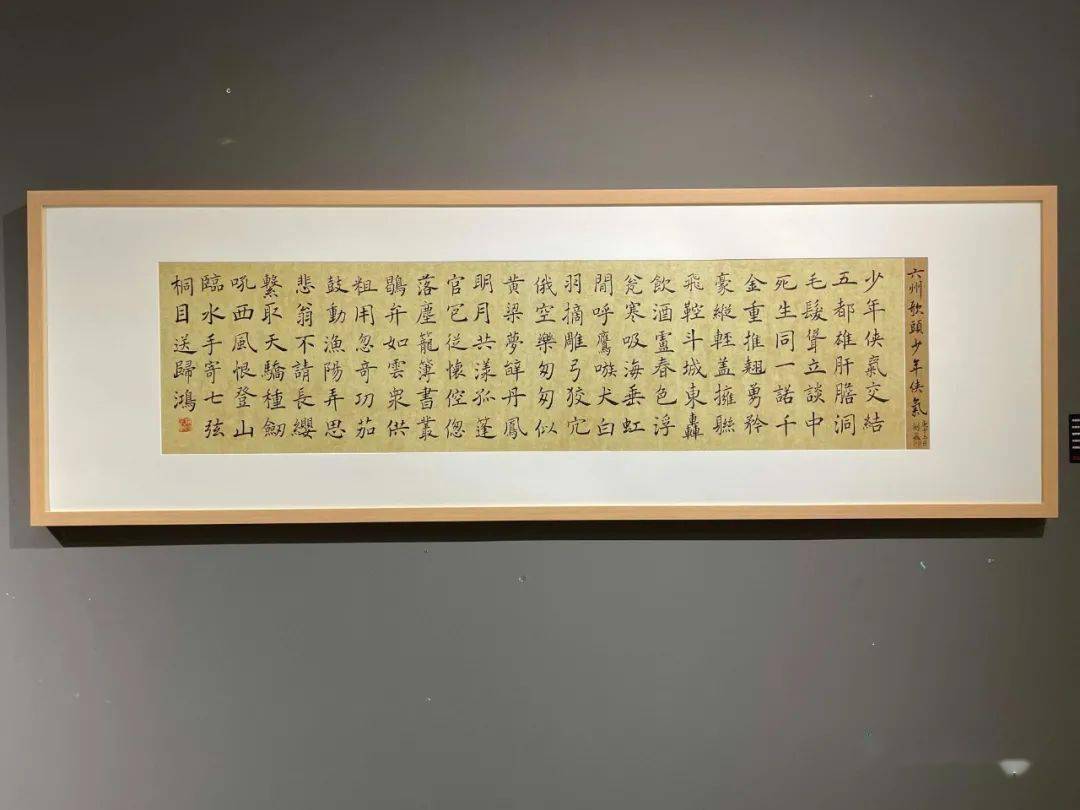 六州歌頭少年俠氣
少年俠氣交結
五都雄肝膽洞
毛髮聳立談中
死生同一諾千
金重推翹勇矜
豪縱輕蓋擁聯
飛鞚斗城東轟
飲酒盧春色浮
瓮寒吸海垂虹
閒呼鷹嗾犬白
羽摘雕弓狡穴
俄空樂匆匆似
黃梁夢辭丹鳳
明月共漾孤蓬
官冗從懷倥傯
落塵籠簿書叢
鶡弁如雲衆供
粗用忽奇功笳
鼓動漁陽弄思
悲翁不請長纓
繫取天驕種劒
吼西風恨登山
臨水手寄七弦
桐目送歸鴻